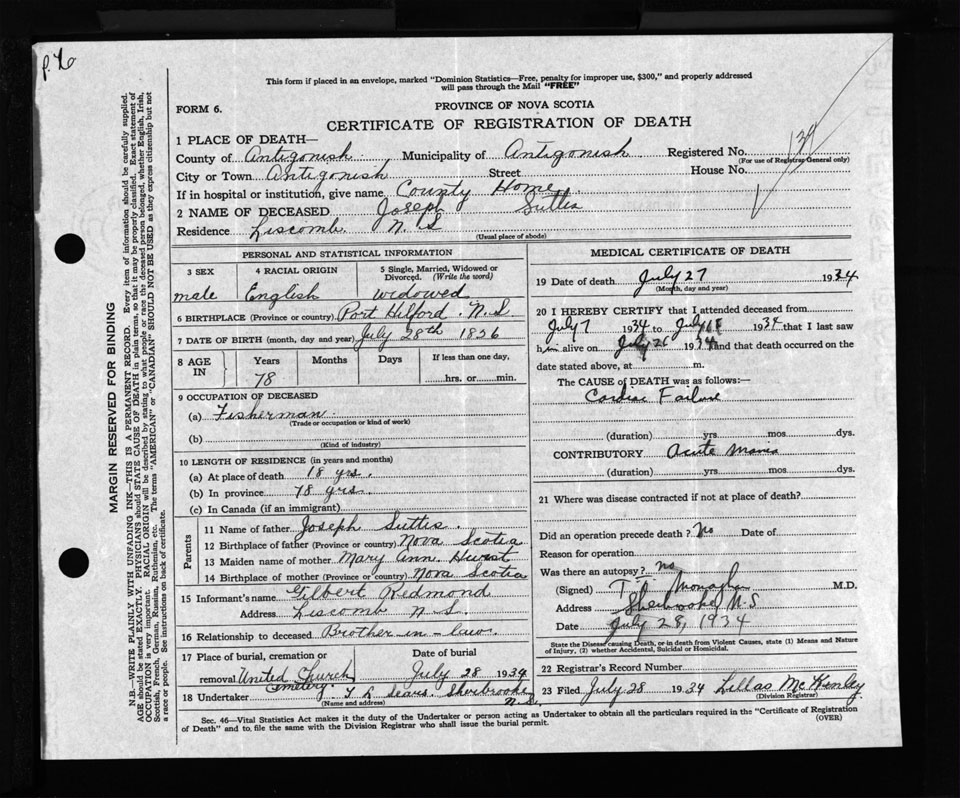 p. 76
This form if placed in an envelope, marked "Dominion Statistics—Free, penalty for improper use, $300," and properly addressed
will pass through the Mail "FREE"
FORM 6.
PROVINCE OF NOVA SCOTIA
CERTIFICATE OF REGISTRATION OF DEATH
1 PLACE OF DEATH—
County of Antigonish Municipality of Antigonish Registered No. 139
(For use of Registrar General only)
City or Town Antigonish Street House No.
If in hospital or institution, give name County Home
2 NAME OF DECEASED Joseph Suttis
Residence Liscomb. N. S
(Usual place of abode)
PERSONAL AND STATISTICAL INFORMATION
3 SEX 4 RACIAL ORIGIN 5 Single, Married, Widowed or
Divorced. (Write the word)
male English widowed
6 BIRTHPLACE (Province or country) Port Hilford. N. S
7 DATE OF BIRTH (month, day and year) July 28th 1856
8 AGE IN Years Months Days If less than one day,
78 hrs. or min.
9 OCCUPATION OF DECEASED
(a) Fisherman
(Trade or occupation or kind of work)
(b)
(Kind of industry)
10 LENGTH OF RESIDENCE (in years and months)
(a) At place of death 18 yrs.
(b) In province 78 yrs.
(c) In Canada (if an immigrant)
Parents
11 Name of father Joseph Suttis.
12 Birthplace of father (Province or country) Nova Scotia
13 Maiden name of mother Mary Ann Hurst
14 Birthplace of mother (Province or country) Nova Scotia
15 Informant's name Gilbert Redmond
Address Liscomb N. S.
16 Relationship to deceased Brother-in-law.
17 Place of burial, cremation or Date of burial
removal United Church July 28 1934
Cemetery.
18 Undertaker T R Sears. Sherbrooke
(Name and address) N. S.
MEDICAL CERTIFICATE OF DEATH
19 Date of death July 27 1934
(Month, day and year)
20 I HEREBY CERTIFY that I attended deceased from
July 7 1934 to July 1934 that I last saw
him alive on July 26 1934 and that death occurred on the
date stated above, at m.
The CAUSE of DEATH was as follows:—
Cardiac Failure
(duration) yrs mos dys.
CONTRIBUTORY Acute Mania
(duration) yrs mos dys.
21 Where was disease contracted if not at place of death?
Did an operation precede death? No Date of
Reason for operation
Was there an autopsy? no
(Signed) M.D.
Address Sherbrooke N. S
Date July 28, 1934
State the Disease causing Death, or in death from Violent Causes, state (1) Means and Nature
of Injury, (2) whether Accidental, Suicidal or Homicidal.
22 Registrar's Record Number
23 Filed July 28 1934 Lillas McKinley
(Division Registrar)
Sec. 46—Vital Statistics Act makes it the duty of the Undertaker or person acting as Undertaker to obtain all the particulars required in the "Certificate of Registration
of Death" and to file the same with the Division Registrar who shall issue the burial permit. (OVER)
MARGIN RESERVED FOR BINDING
N.B.—WRITE PLAINLY WITH UNFADING INK—THIS IS A PERMANENT RECORD. Every item of information should be carefully supplied.
AGE should be stated EXACTLY. PHYSICIANS should STATE CAUSE OF DEATH in plain terms, so that it may be properly classified. Exact statement of
OCCUPATION is very important. RACIAL ORIGIN will be described by stating to what people or race the deceased person belonged, whether English, Irish,
Scottish, French, German, Russian, Ruthenian, etc. The terms "AMERICAN" or "CANADIAN" SHOULD NOT BE USED as they express citizenship but not
a race or people. See instructions on back of certificate.